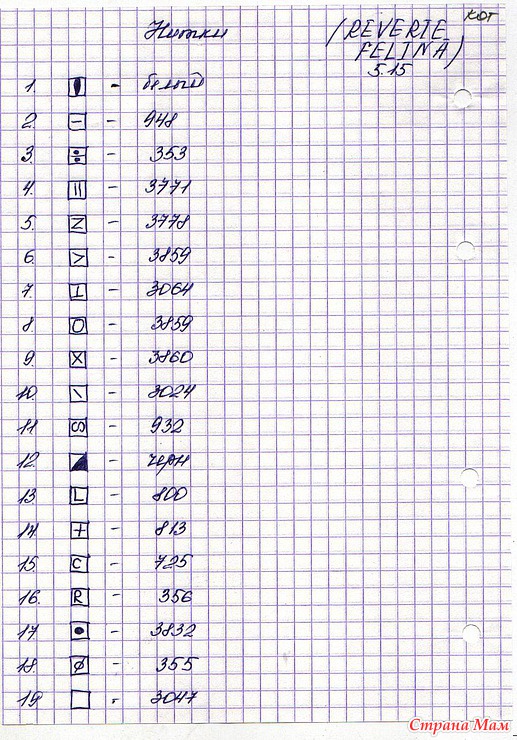 кот
Нитки (REVERIE
FELINA)
5.15
1. - белый
2. – - 948
3. ÷ - 353
4. || - 3771
5. Z - 3778
6. > - 3859
7. ⊥ - 3064
8. O - 3859
9. X - 3860
10. \ - 3024
11 S - 932
12. - черн
13. L - 800
14. + - 813
15. C - 725
16. R - 356
17. ● - 3832
18. ø - 355
19 - 3047
Страна Мам